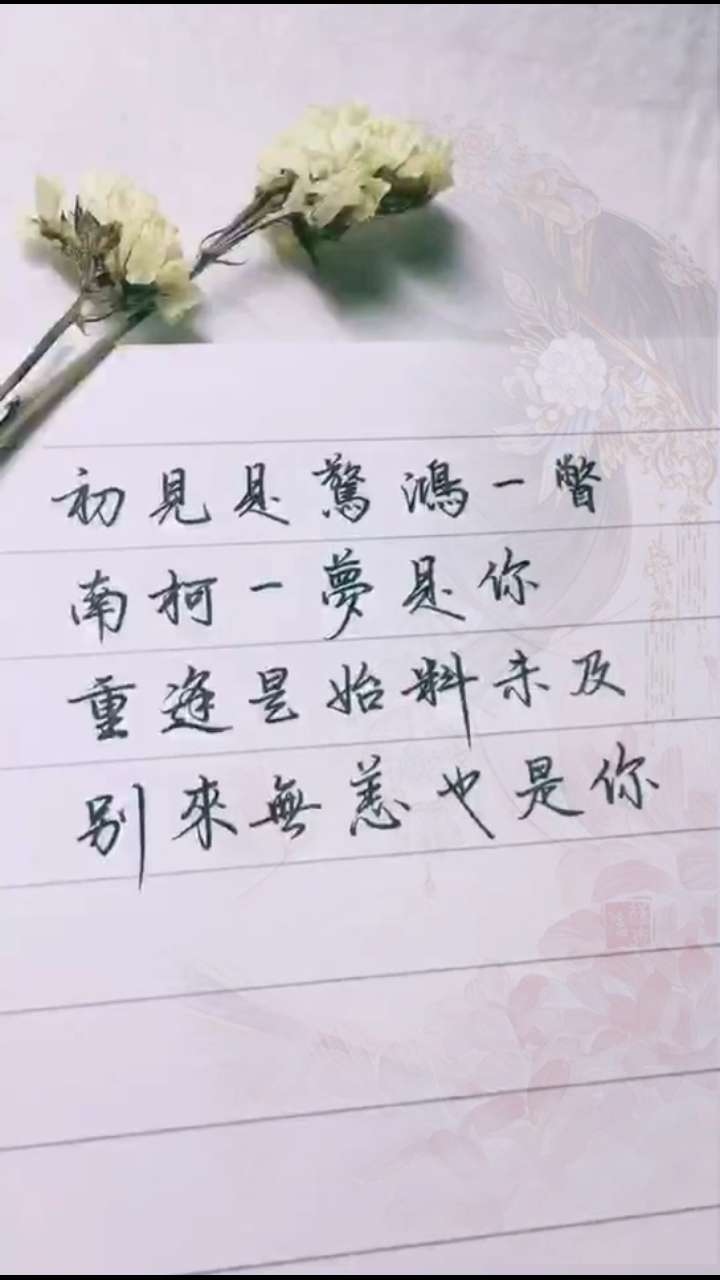 初見是驚鴻一瞥
南柯一夢是你
重逢是始料未及
別來無恙也是你